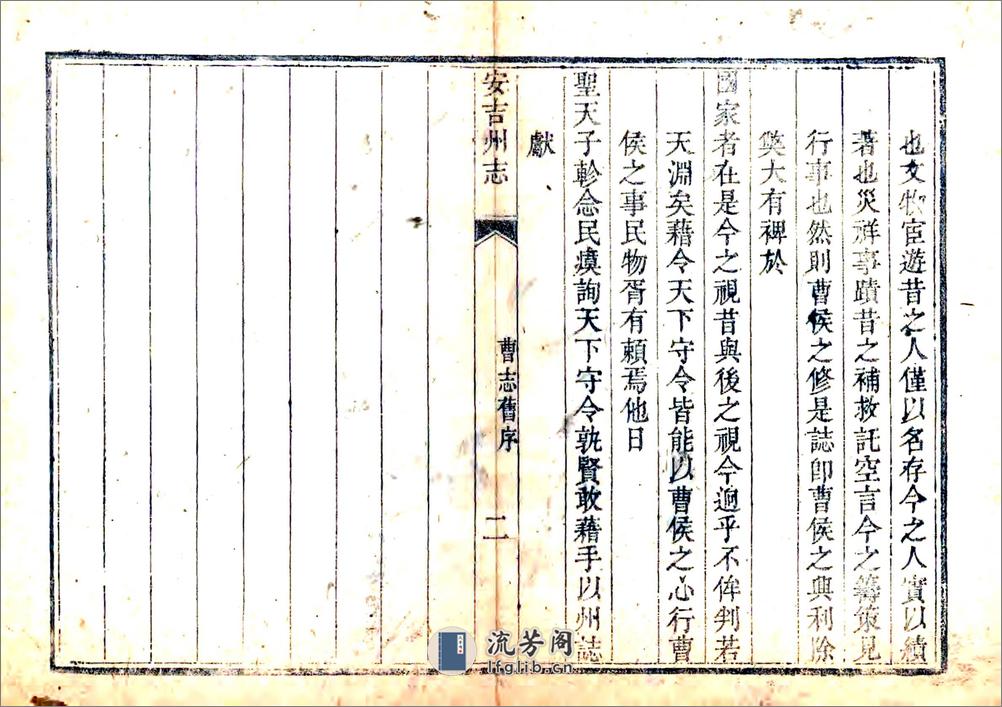 也文物宦遊昔之人僅以名存今之人實以績
著也災祥事蹟昔之補救託空言今之籌策見
行事也然則曹侯之修是誌卽曹侯之興利除
獘大有裨於
國家者在是今之視昔與後之視今逈乎不侔判若
天淵矣藉令天下守令皆能以曹侯之心行曹
侯之事民物胥有賴焉他日
聖天子軫念民瘼詢天下守令孰賢敢藉手以州誌
獻
安吉州志
曹志舊序
二
流芳阁
lfglib.cn